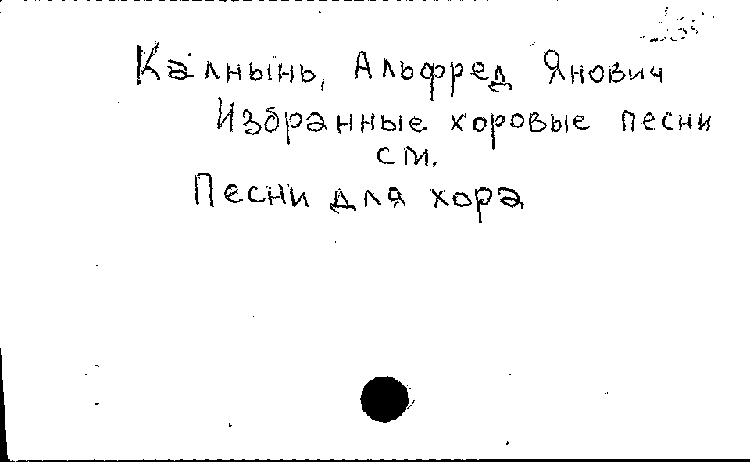 Калнынь, Альфред Янович
Избранные хоровые песни
см.
Песни для хора